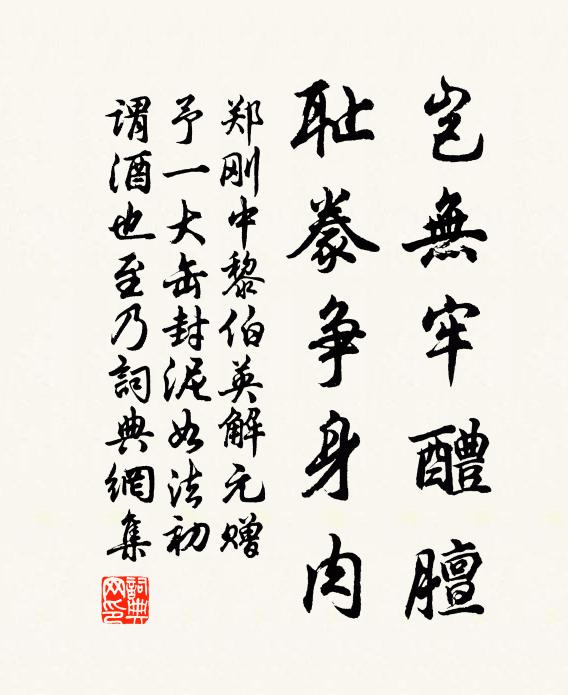 岂無牢醴膻
耻豢争身肉
郑刚中黎伯英解元赠
予一大缶封泥如法初
謂酒也至乃詞典網集
詞典網印